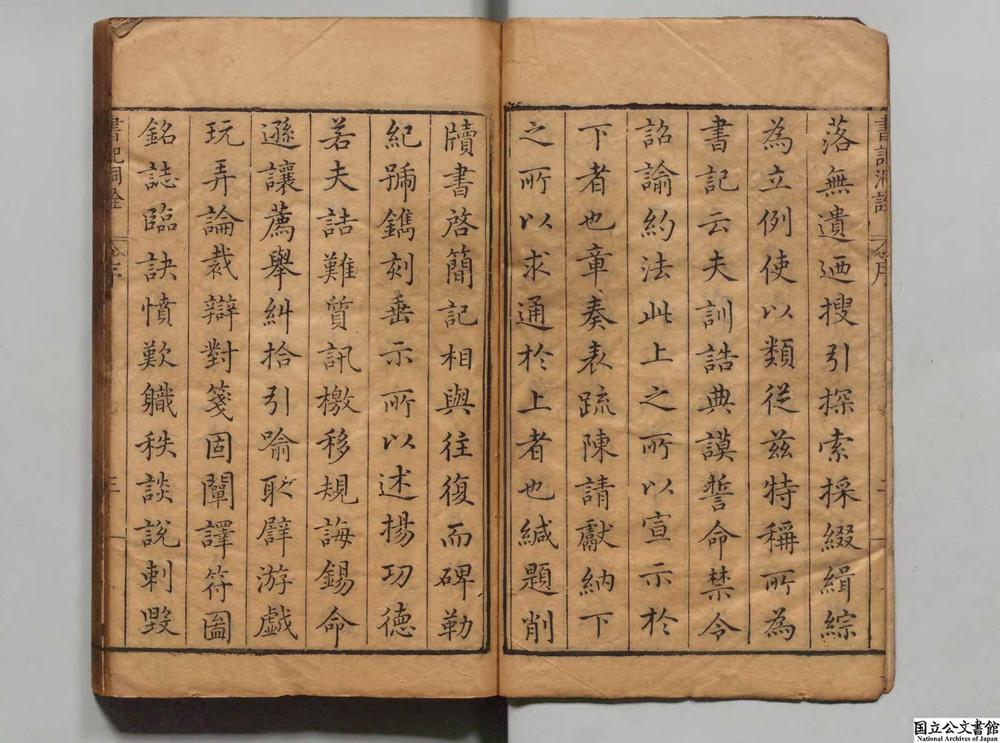 落無遺迺搜引探索採綴緝綜
為立例使以類從茲特稱所為
書記云夫訓誥典謨誓命禁令
詔諭約法此上之所以宣示於
下者也章奏表疏陳請獻納下
之所以求通於上者也緘題削
牘書啓簡記相與往復而碑勒
紀號鐫刻垂示所以述揚功德
若夫詰難質訊檄移規誨錫命
遜讓薦舉糾拾引喻取譬游戲
玩弄論裁辯對箋固闡譯符圖
銘誌臨訣憤歎軄秩談說刺毀
書記洞詮
序
三
国立公文書館
National Archives of Japan